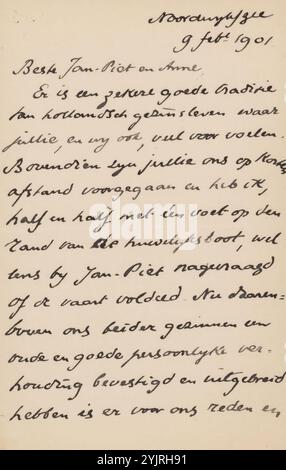 Noordwijk/Zee
9 febr. 1901
Beste Jan-Piet en Anne
Er is een zekere goede traditie
van hollandsch gezinsleven waar
jullie, en wy ook, veel voor voelen.
Bovendien zyn jullie ons op korten
afstand voorgegaan en heb ik,
half en half met één voet op den
rand van de huwelyksboot, wel
eens by Jan-Piet nagevraagd
of de vaart voldeed. Nu daaren-
boven ons beider gezinnen een
oude en goede persoonlyke ver-
houding bevestigd en uitgebreid
hebben is er voor ons reden en
alamy
alamy
Image ID: 2YJRH91
www.alamy.com